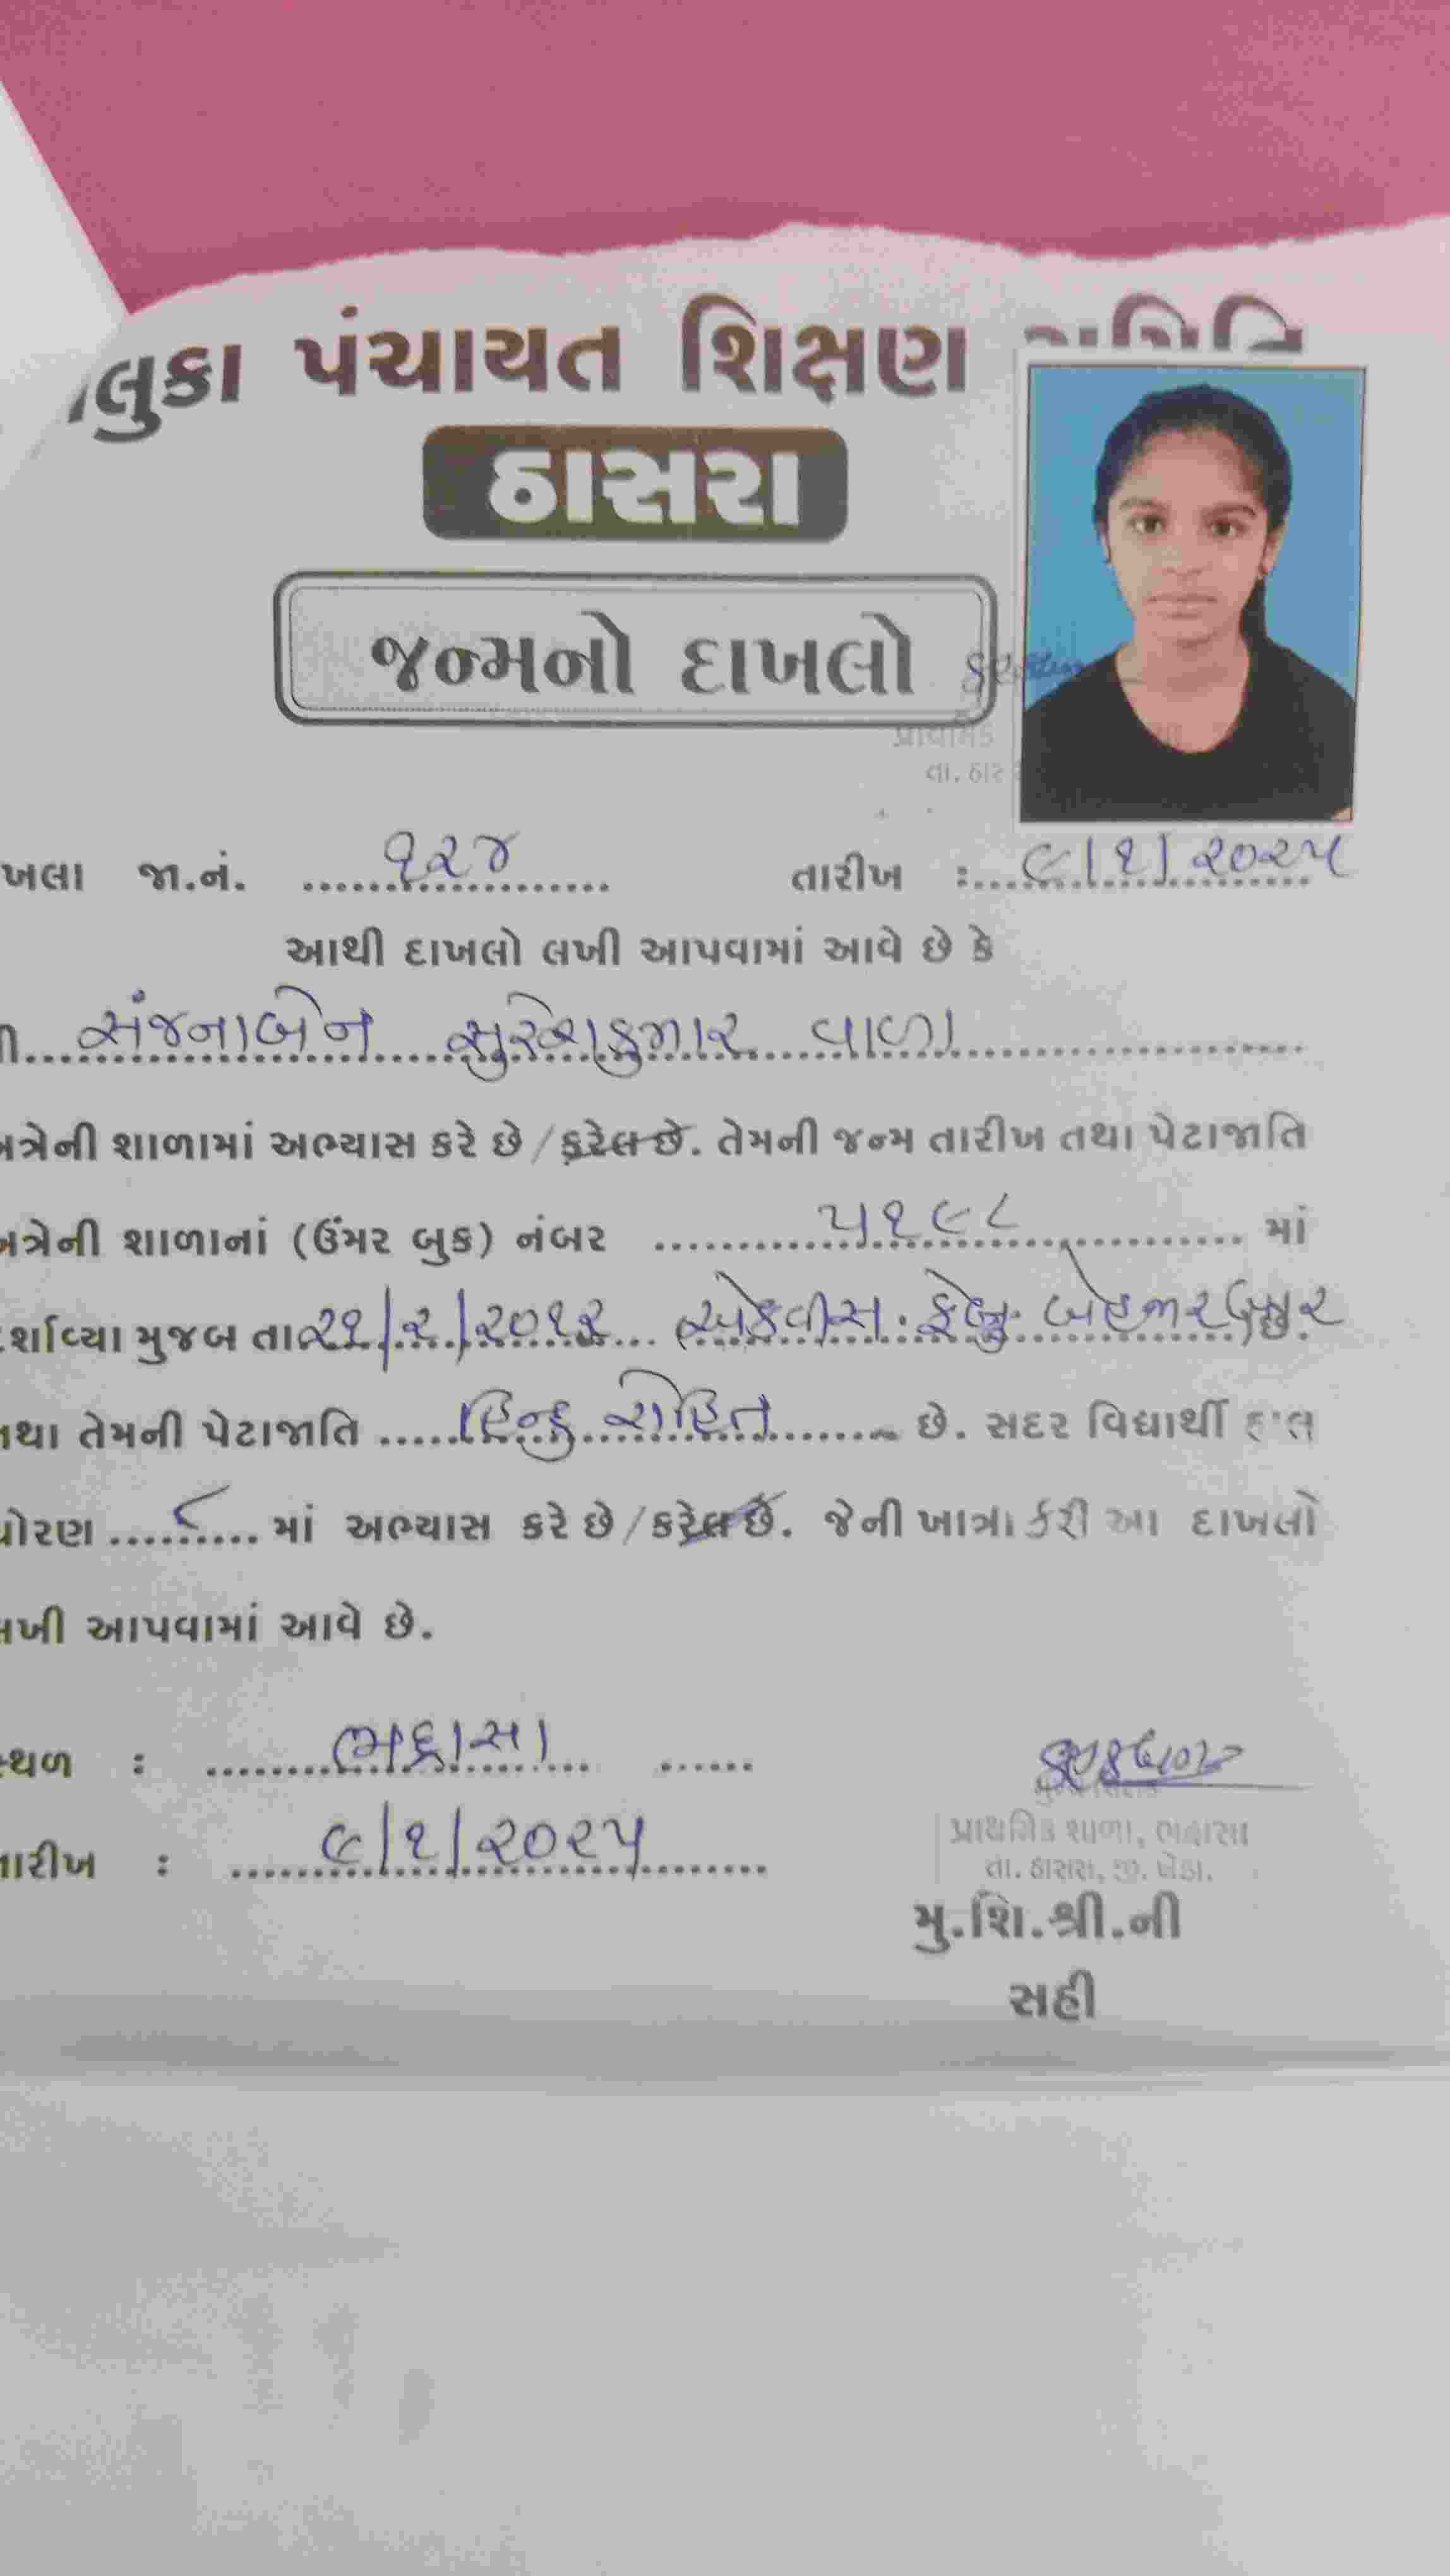 લુકા પંચાયત શિક્ષણ
ઠાસરા
જન્મનો દાખલો
પ્રાથમિક
તા. ઠાસ
ખલા જા.નં. ૧૨૪ તારીખ : ૯/૧/૨૦૨૫
આથી દાખલો લખી આપવામાં આવે છે કે
સંજનાબેન સુરેશકુમાર વાળા
ત્રેની શાળામાં અભ્યાસ કરે છે / કરેલ છે. તેમની જન્મ તારીખ તથા પેટાજાતિ
ત્રેની શાળાનાં (ઉંમર બુક) નંબર ૫૧૯૮ માં
ર્શાવ્યા મુજબ તા ૨૧/૨/૨૦૧૨ (એકવીસ. ફેબ્રુ. બેહજાર બાર
તથા તેમની પેટાજાતિ હિન્દુ રોહિત છે. સદર વિદ્યાર્થી હાલ
ધોરણ ૮ માં અભ્યાસ કરે છે / કરેલ છે. જેની ખાત્રી કરી આ દાખલો
લખી આપવામાં આવે છે.
સ્થળ : ભદ્રાસા
તારીખ : ૯/૧/૨૦૨૫
પ્રાથમિક શાળા, ભદ્રાસા
તા. ઠાસરા, જી. ખેડા.
મુ.શિ.શ્રી.ની
સહી